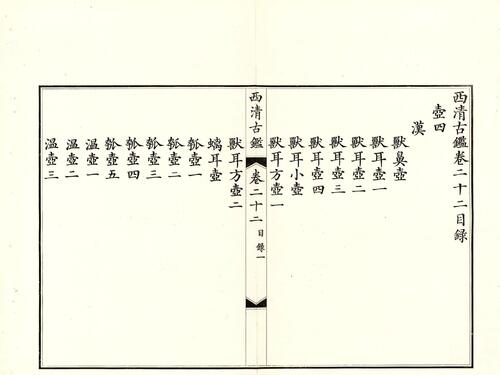 西清古鑑卷二十二目錄
壺四
漢
獸鼻壺
獸耳壺一
獸耳壺二
獸耳壺三
獸耳壺四
獸耳小壺
獸耳方壺一
西清古鑑
卷二十二
目錄一
獸耳方壺二
螭耳壺
瓠壺一
瓠壺二
瓠壺三
瓠壺四
瓠壺五
溫壺一
溫壺二
溫壺三